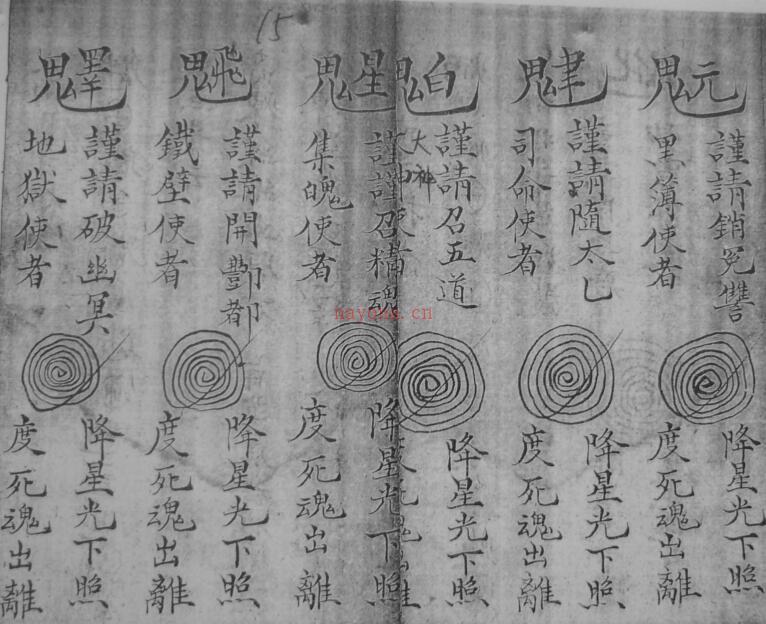 15
謹請銷冤讐
黑簿使者
降星光下照
度死魂出離
謹請隨太乙
司命使者
降星光下照
度死魂出離
謹請召五道
大神
降星光下照
謹謹召精魂
集魄使者
降星光下照
度死魂出離
謹請開酆都
鐵壁使者
降星光下照
度死魂出離
謹請破幽冥
地獄使者
降星光下照
度死魂出離